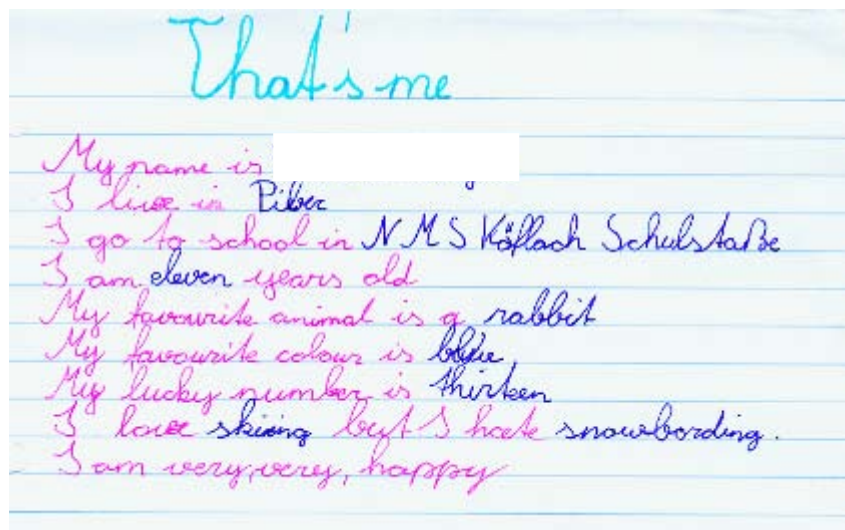 That's me
My name is
I live in Piber
I go to school in NMS Köflach Schulstaße
I am eleven years old
My favourite animal is a rabbit
My favourite colour is blue
My lucky number is thirteen
I love skiing but I hate snowbording.
I am very, very, happy